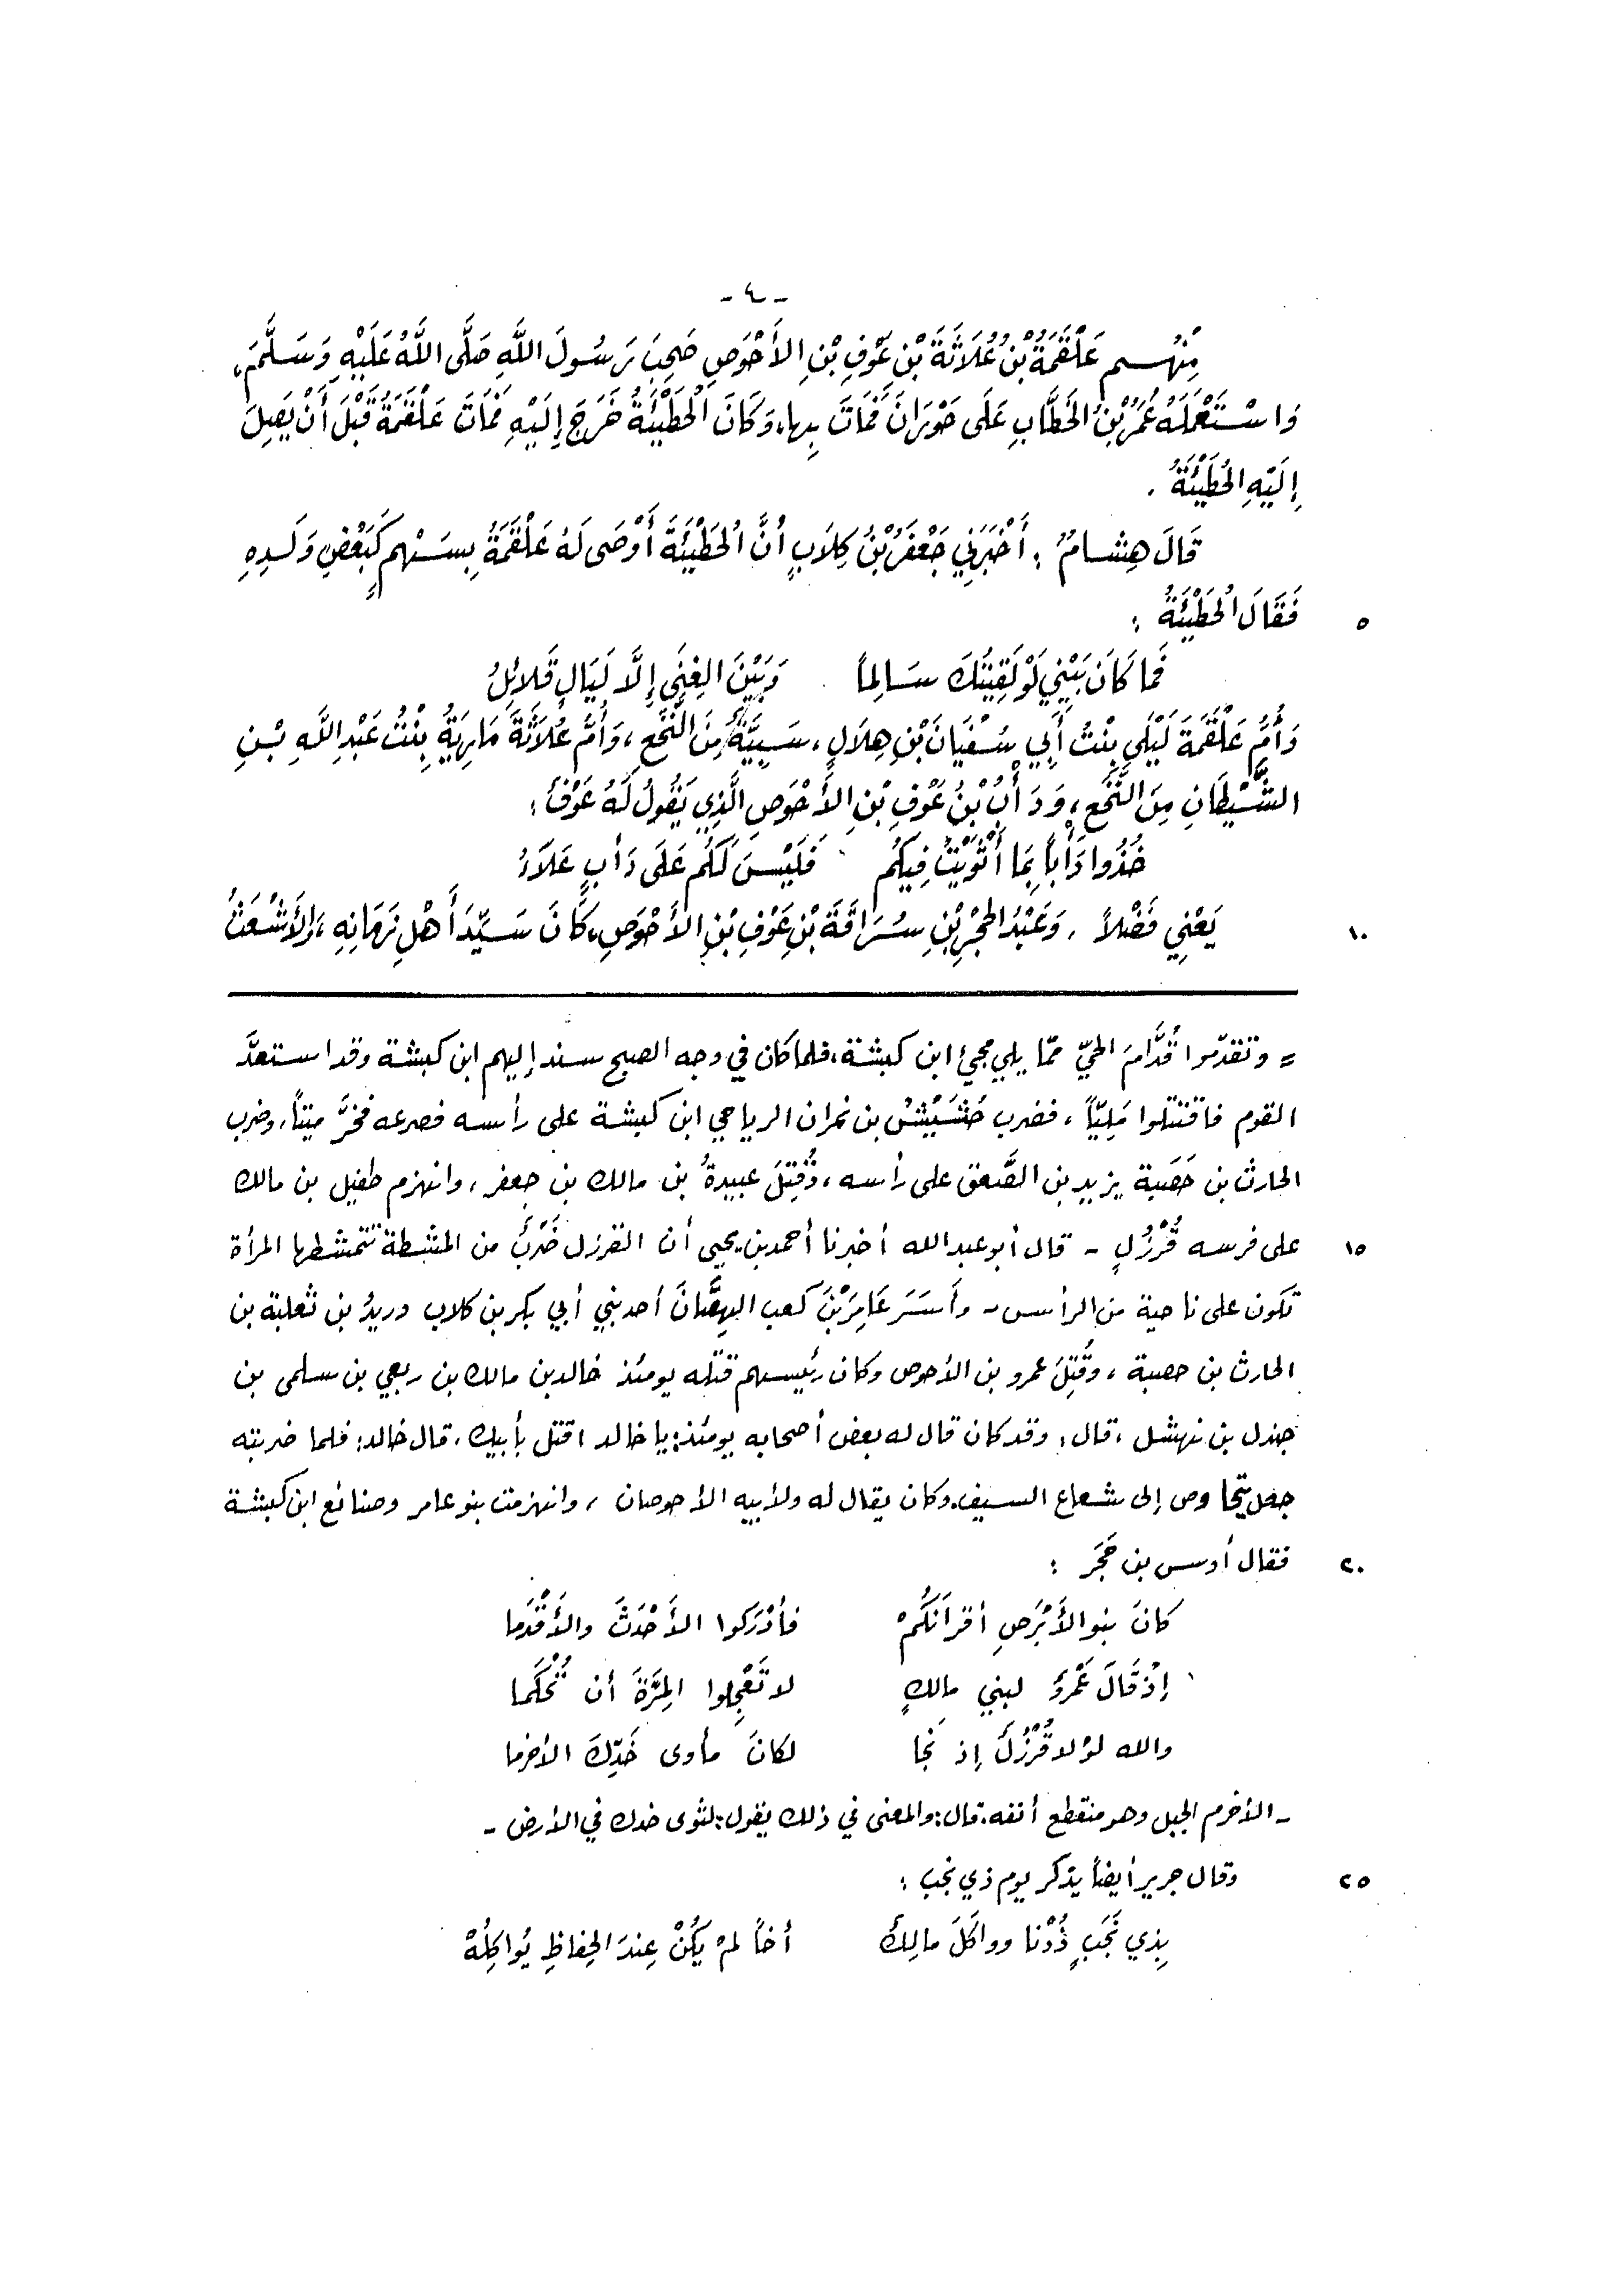 - ٤ -
مِنْهُم عَلْقَمَةُ بْنُ عُلَاثَةَ بْنِ عَوْفِ بْنِ الأَحْوَصِ صَحِبَ رَسُولَ اللَّهِ صَلَّى اللَّهُ عَلَيْهِ وَسَلَّمَ،
وَاسْتَعْمَلَهُ عُمَرُ بْنُ الخَطَّابِ عَلَى حَوْرَانَ فَمَاتَ بِها، وَكَانَ الْحُطَيْئَةُ خَرَجَ إِلَيْهِ فَمَاتَ عَلْقَمَةُ قَبْلَ أَنْ يَصِلَ
إِلَيْهِ الْحُطَيْئَةُ .
قَالَ هِشَامُ : أَخْبَرَنِي جَعْفَرُ بْنُ كِلاَبٍ أَنَّ الْحُطَيْئَةَ أَوْصَى لَهُ عَلْقَمَةُ بِسَهْمٍ كَبَعْضِ وَلَدِهِ
٥ فَقَالَ الْحُطَيْئَةُ :
فَمَا كَانَ بَيْنِي لَوْ لَقِيتُكَ سَالِماً وَبَيْنَ الغِنَى إِلَّا لَيَالٍ قَلَائِلُ
وَأُمُّ عَلْقَمَةَ لَيْلَى بِنْتُ أَبِي سُفْيَانَ بْنِ هِلَالٍ، سَبِيَّةٌ مِنَ النَّخَعِ، وَأُمُّ عُلَاثَةَ مَارِيَةُ بِنْتُ عَبْدِ اللَّهِ بْنِ
الشَّيْطَانِ مِنَ النَّخَعِ، وَدَأْبُ بْنُ عَوْفِ بْنِ الأَحْوَصِ الَّذِي يَقُولُ لَهُ عَوْفٌ :
خُذُوا دَأْباً بِمَا أَثْوَيْتُ فِيكُم فَلَيْسَ لَكُم عَلَى دَأبٍ عَلَاءُ
١٠ يَعْنِي فَضْلاً . وَعَبْدُ الحِجْرِ بْنِ سُرَاقَةَ بْنِ عَوْفِ بْنِ الأَحْوَصِ، كَانَ سَيِّدَ أَهْلِ زَمَانِهِ، وَالأَشْعَثُ
= وتقدّموا قُدَّامَ الحيّ ممّا يلي مجيء ابن كبشة، فلما كان في وجه الصبح سند إليهم ابن كبشة وقد استعدَّ
القوم فاقتتلوا مَلِيّاً، فضرب حُشَيْشُ بن نمران الرياحي ابن كبشة على رأسه فصرعه فخرَّ ميتاً، وضرب
الحارث بن حَصَبة يزيد بن الصَّعق على رأسه، وقُتِلَ عبيدةُ بن مالك بن جعفر، وانهزم طفيل بن مالك
١٥ على فرسه قُرْزُلٍ - قال أبو عبد الله أخبرنا أحمد بن يحيى أن القرزل ضَرْبٌ من المشطة تتمشطها المرأة
تكون على ناحية من الرأس - وأَسَرَ عَامِرَ بْنَ كعب البِهصَّانَ أحد بني أبي بكر بن كلاب دريدُ بن ثعلبة بن
الحارث بن حصبة، وقُتِلَ عمرو بن الأحوص وكان رئيسهم قتله يومئذ خالد بن مالك بن ربعي بن سلمى بن
جندل بن نهشل، قال: وقد كان قال له بعض أصحابه يومئذ: يا خالد اقتل بأبيك، قال خالد: فلما ضربته
جعل يتحاوص إلى شعاع السيف. وكان يقال له ولأبيه الأحوصان، وانهزمت بنو عامر وصنائع ابن كبشة
٢٠ فقال أوس بن حَجَر :
كانَ بنو الأَبْرَصِ أقرانَكُمْ فأدْرَكوا الأَحْدَثَ والأَقْدَما
إِذْ قَالَ عَمْروٌ لبني مالكٍ لا تَعْجِلوا المِرَّةَ أن تُحْكَما
والله لوْلا قُرْزُلٌ إذ نَجَا لكانَ مأوى خَدِّكَ الأخرما
- الأخرم الجبل وهو منقطع أنفه. قال: والمعنى في ذلك يقول: لثوى خدك في الأرض -
٢٥ وقال جرير أيضاً يذكر يوم ذي نجب :
بِذي نَجَبٍ ذُدْنا وواكَلَ مالِكٌ أخاً لمْ يَكُنْ عِندَ الحِفاظِ يُواكِلُهْ